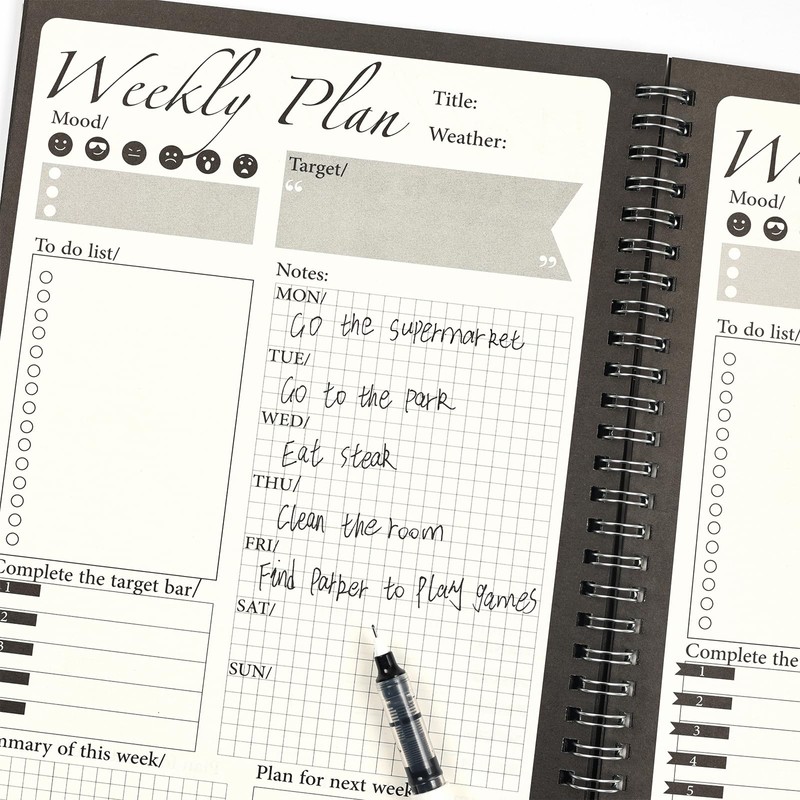 Weekly Plan
Title:
Weather:
Mood/
Target/
“
”
To do list/
Notes:
MON/
Go the supermarket
TUE/
Go to the park
WED/
Eat steak
THU/
Clean the room
FRI/
Find Parper to play games
SAT/
SUN/
Complete the target bar/
1
2
3
mmary of this week/
Plan for next week
Mood/
To do list/
Complete the
1
2
3
4
5